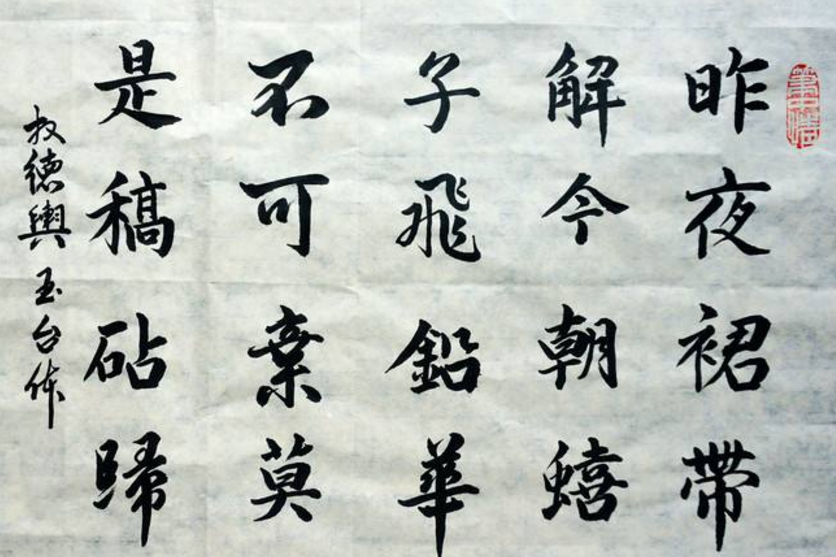 昨夜裙带
解今朝蟢
子飛鉛華
不可棄莫
是稿砧歸
权德輿玉台体